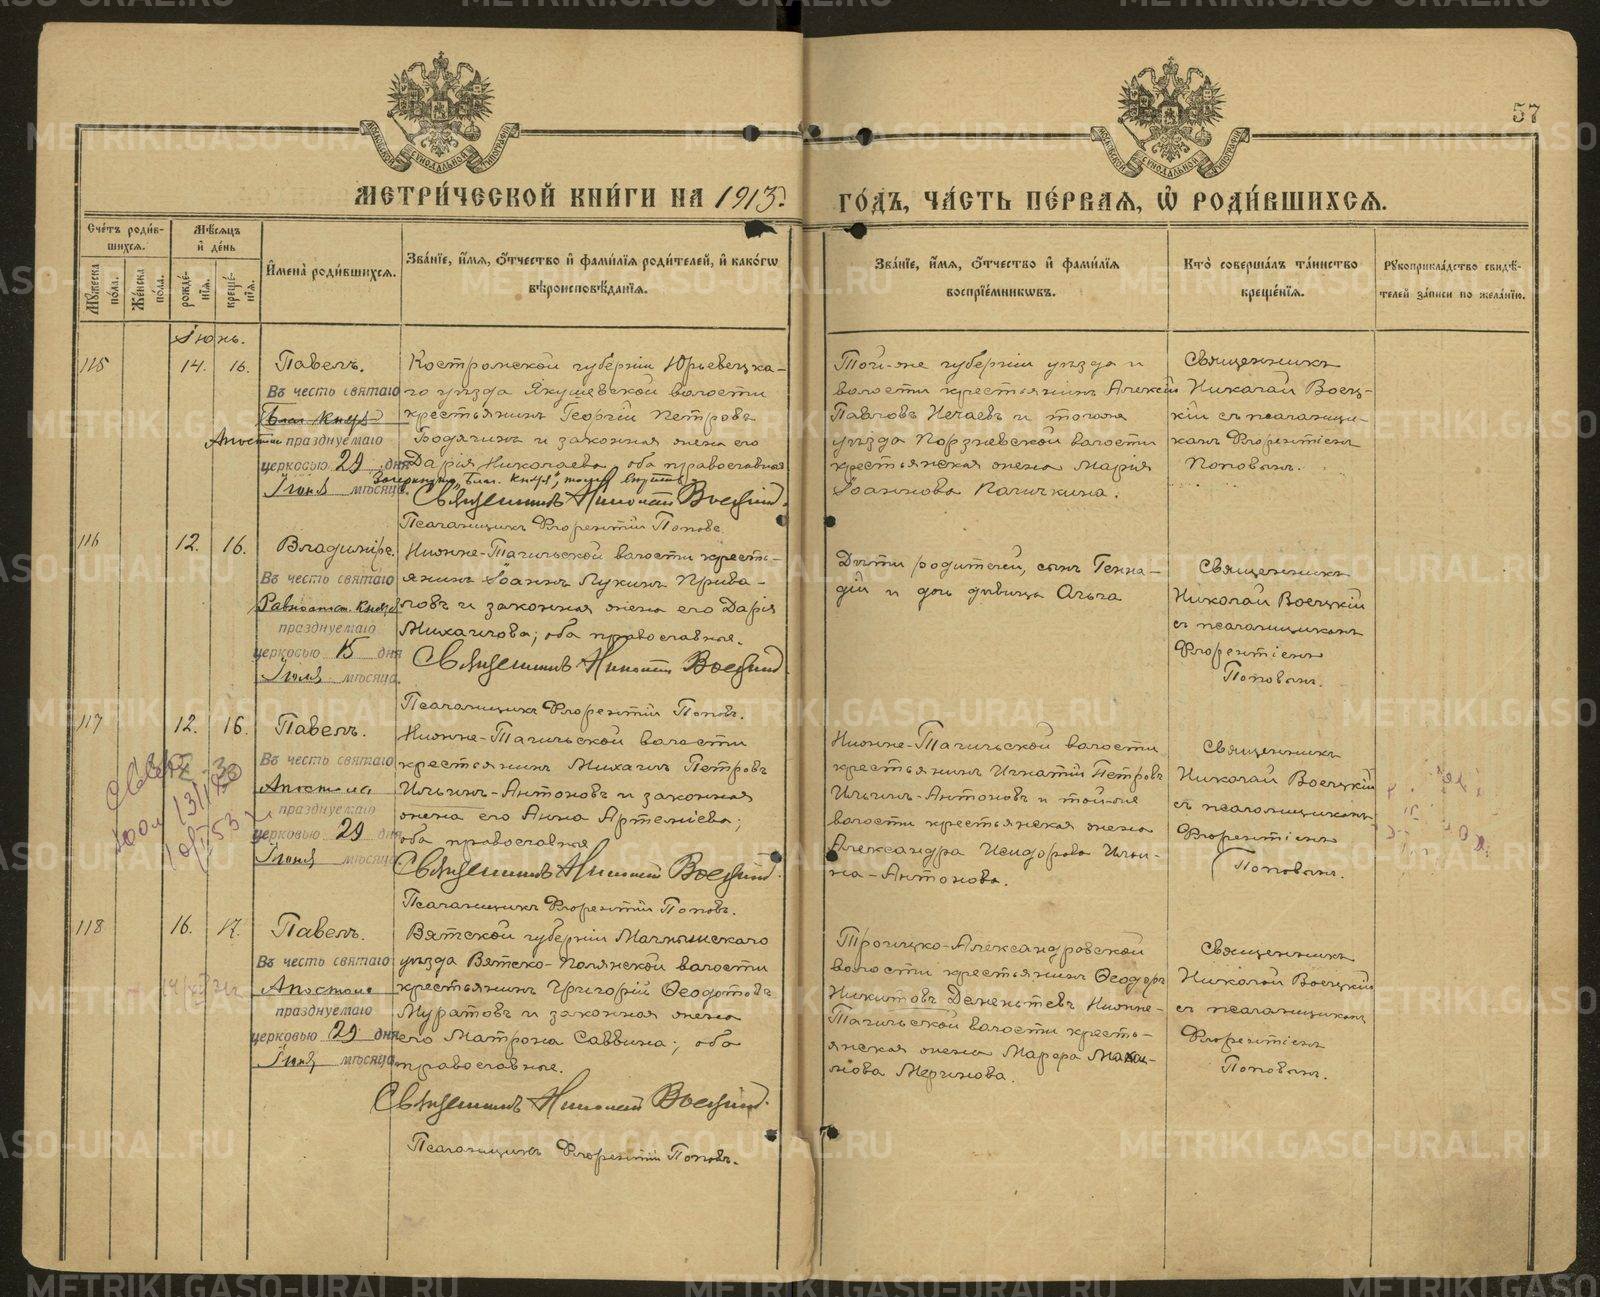 57
МОСКОВСКОЙ СѴНОДАЛЬНОЙ ТИПОГРАФІИ
МОСКОВСКОЙ СѴНОДАЛЬНОЙ ТИПОГРАФІИ
МЕТРИ́ЧЕСКОЙ КНИ́ГИ НА 1913
ГО́ДЪ, ЧА́СТЬ ПЕ́РВАЯ, Ѡ҆ РОДИ́ВШИХСЯ.
Сче́тъ роди́в-
шихся.
Мꙋ́жеска по́ла.
Же́нска по́ла.
Мѣ́сяцъ
и҆ де́нь
рожде́нїя.
креще́нїя.
И҆мена̀ роди́вшихся.
Зва́нїе, и҆́мя, ѻ҆́тчество и҆ фами́лїя роди́телей, и҆ како́гѡ
вѣроисповѣ́данїя.
Зва́нїе, и҆́мя, ѻ҆́тчество и҆ фами́лїя
воспрїе́мникѡвъ.
Кто̀ соверша́лъ та́инство
креще́нїя.
Рꙋкоприкла́дство свидѣ́-
телей за́писи по жела́нїю.
Іюнь.
115
14.
16.
Павелъ.
Въ честь святаго
Благ. Князя
Апостола празднуемаго
церковью 29 дня
Іюня мѣсяца.
Костромской губерніи Юрьевецка-
го уѣзда Якушевской волости
крестьянинъ Георгій Петровъ
Бодягинъ и законная жена его
Дарія Николаева, оба православные
Зачеркнуто „Благ. Князя",
Священникъ Николай Воецкій.
Псаломщикъ Флорентій Поповъ.
Той-же губерніи уѣзда и
волости крестьянинъ Алексій
Павловъ Нечаевъ и того же
уѣзда Порзневской волости
крестьянская жена Марія
Іоаннова Паличкина.
Священникъ
Николай Воец-
кій съ псаломщи-
комъ Флорентіемъ
Поповымъ.
116
12.
16.
Владиміръ.
Въ честь святаго
Равноапост. Князя
празднуемаго
церковью 15 дня
Іюля мѣсяца.
Нижне-Тагильской волости кресть-
янинъ Іоаннъ Лукинъ Прива-
ловъ и законная жена его Дарія
Михайлова; оба православные.
Священникъ Николай Воецкій
Псаломщикъ Флорентій Поповъ.
Дѣти родителей, сынъ Генна-
дій и дочь дѣвица Ольга
Священникъ
Николай Воецкій
съ псаломщикомъ
Флорентіемъ
Поповымъ.
117
12.
16.
Павелъ.
Въ честь святаго
Апостола
празднуемаго
церковью 29 дня
Іюня мѣсяца
Нижне-Тагильской волости
крестьянинъ Михаилъ Петровъ
Ильинъ-Антоновъ и законная
жена его Анна Артеміева;
оба православные
Священникъ Николай Воецкій.
Псаломщикъ Флорентій Поповъ.
Нижне-Тагильской волости
крестьянинъ Игнатій Петровъ
Ильинъ-Антоновъ и той-же
волости крестьянская жена
Александра Исидорова Ильи-
на-Антонова.
Священникъ
Николай Воецкій
съ псаломщикомъ
Флорентіемъ
Поповымъ.
118
16.
17.
Павелъ.
Въ честь святаго
Апостола
празднуемаго
церковью 29 дня
Іюня мѣсяца.
Вятской губерніи Малмыжскаго
уѣзда Вятско-Полянской волости
крестьянинъ Григорій Ѳеодотовъ
Муратовъ и законная жена
его Матрона Саввина; оба
православные.
Священникъ Николай Воецкій.
Псаломщикъ Флорентій Поповъ.
Троицко-Александровской
волости крестьянинъ Ѳеодоръ
Никитовъ Деменьтевъ Нижне-
Тагильской волости кресть-
янская жена Марѳа
Меринова.
Священникъ
Николай Воецкій
съ псаломщикомъ
Флорентіемъ
Поповымъ.
METRIKI.GASO-URAL.RU